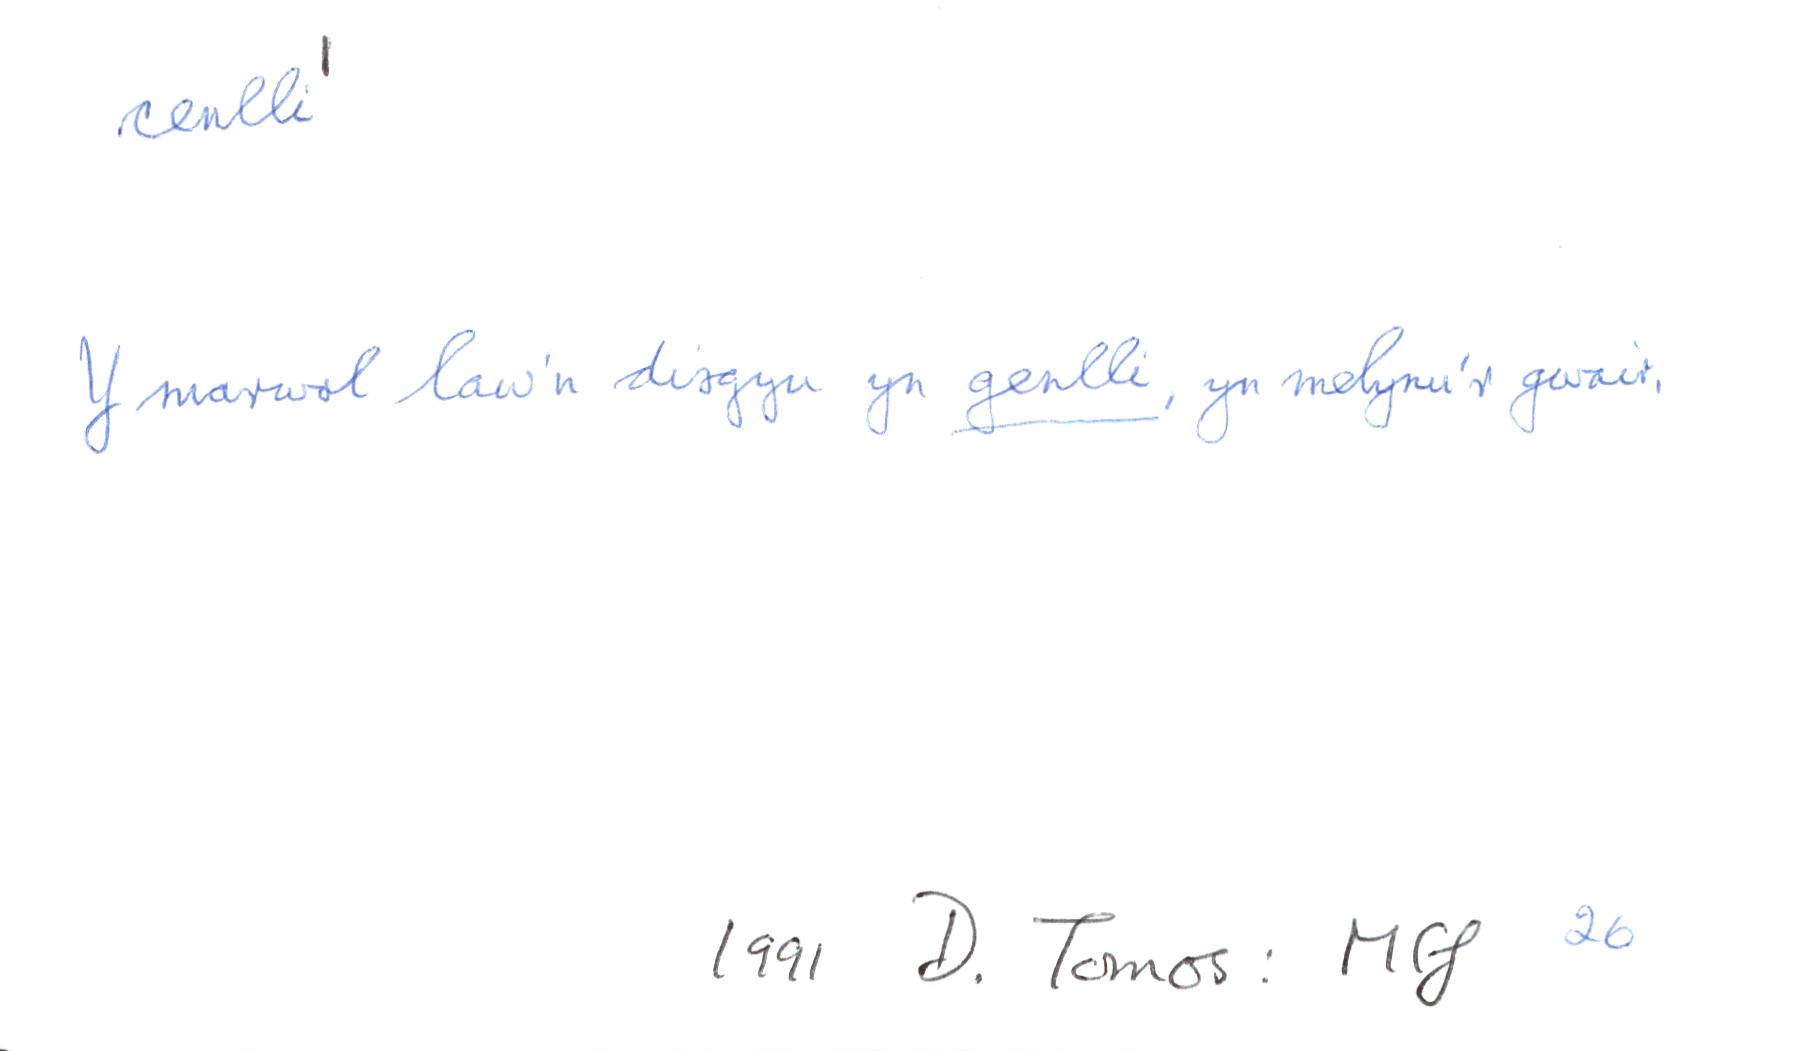 cenlli¹
Y marwol law'n disgyn yn genlli, yn melynu'r gwair.
1991 D. Tomos: MG 26